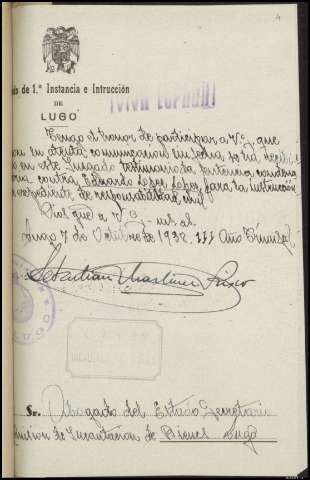 4
de 1.ª Instancia e Intrucción
DE
LUGO
¡VIVA ESPAÑA!
Tengo el honor de participar a V.E. que
con su atenta comunicacion sin fecha se ha recibi
do en este Juzgado testimonio de sentencia condena
toria contra Eduardo Lopez Lopez para la instruccion
de expediente de responsabilidad civil
Dios que a V.E. ms as
Lugo 7 de Octubre de 1938. III Año Triunfal
Sebastian Martinez
Sr. Abogado del Estado Secretario
Comision de Incautacion de Bienes Lugo